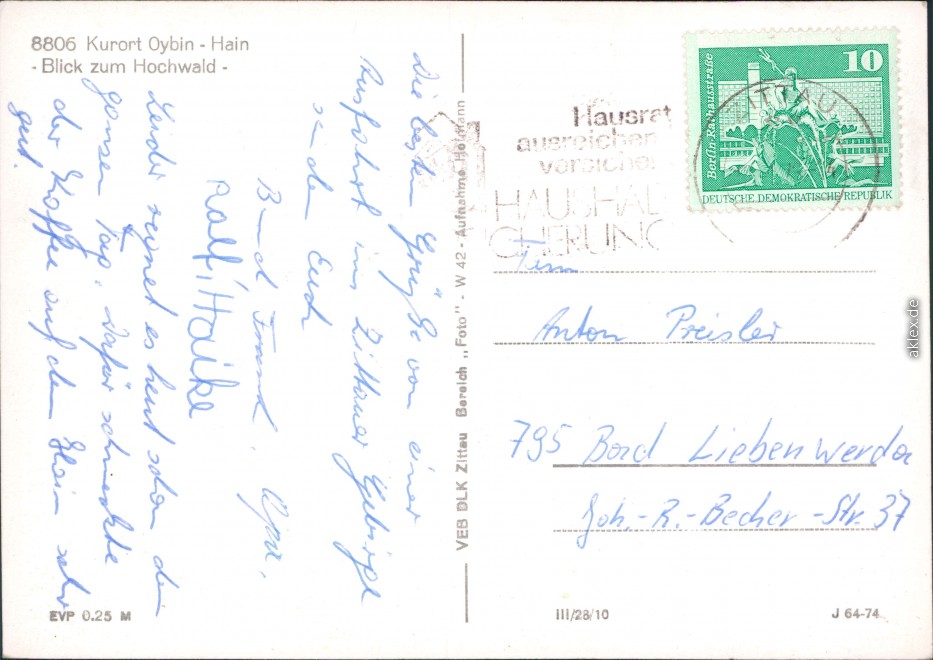 8806 Kurort Oybin - Hain
- Blick zum Hochwald -
Die besten Grüße von einer
Ausfahrt ins Zittauer Gebirge
senden Euch
Bernd, Frank,
Ralf, Haike
Leider regnet es heut schon den
ganzen Tag, dafür schmeckte
der Kaffee auf dem Hain sehr
gut.
EVP 0.25 M
VEB DLK Zittau Bereich „Foto" - W 42 - Aufnahme Hoffmann
Hausrat
ausreichen
versicher
HAUSHAL
CHERUNG
ZITTAU
10
Berlin-Rathausstraße
DEUTSCHE DEMOKRATISCHE REPUBLIK
Anton Preisler
795 Bad Liebenwerda
Joh.-R.-Becher-Str. 37
III/28/10
J 64-74
aklex.de